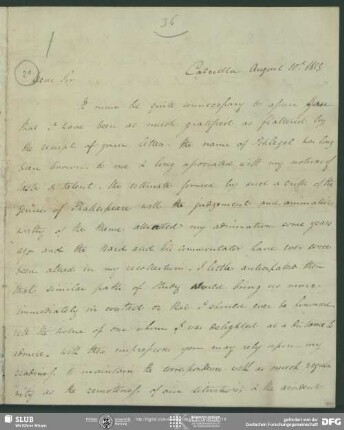 36
Calcutta August 10th 1823
Dear Sir
I must be quite unnecessary to assure you
that I have been as much gratified as flattered by
the receipt of your letter. the name of Schlegel has long
been known to me & long associated with my notions of
taste & talent. the estimate formed by such a critic of the
genius of Shakespeare with the judgement and animation
worthy of the theme attracted my admiration some years
ago and the Bard and his commentator have ever since
been allied in my recollection. I little anticipated then
that similar paths of study would bring us more
immediately in contact or that I should ever be honoured
with the notice of one whom I was delighted at a distance to
admire. With these impressions you may rely upon my
readiness to maintain the correspondence with as much regula
rity as the remoteness of our situations & the
SLUB
Wir führen Wissen.
gefördert von der
Deutschen Forschungsgemeinschaft
DFG